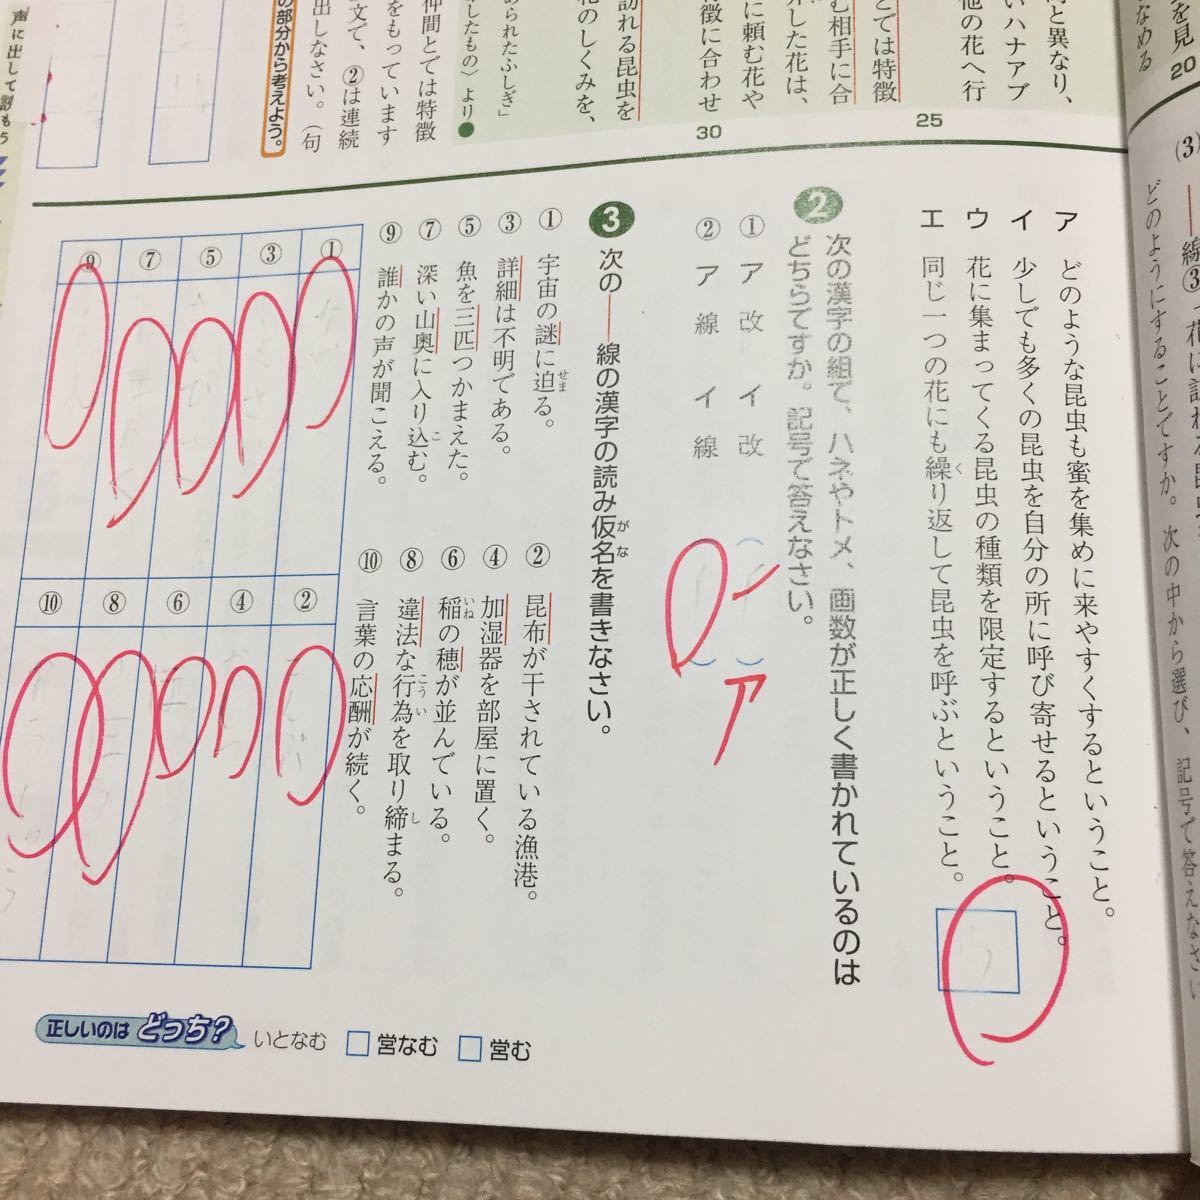 時と異なり、
いハナアブ
他の花へ行
25
とでは特徴
む相手に合
介した花は、
に頼む花や
特徴に合わせ
30
訪れる昆虫を
花のしくみを、
められたふしぎ」
正したもの〉より●
仲間とでは特徴
をもっています
文で、②は連続
出しなさい。(句
の部分から考えよう。
声に出して読もう
を見
なめる
20
(3)
線③
どのようにすることですか。次の中から選び、記号で答えなさい
ア どのような昆虫も蜜を集めに来やすくするということ。
イ 少しでも多くの昆虫を自分の所に呼び寄せるということ。
ウ 花に集まってくる昆虫の種類を限定するということ。
エ 同じ一つの花にも繰り返して昆虫を呼ぶということ。
く
2 次の漢字の組で、ハネやトメ、画数が正しく書かれているのは
どちらですか。記号で答えなさい。
① ア 改 イ 改
② ア 線 イ 線
3 次の――線の漢字の読み仮名を書きなさい。
がな
① 宇宙の謎に迫る。
せま
② 昆布が干されている漁港。
③ 詳細は不明である。
④ 加湿器を部屋に置く。
⑤ 魚を三匹つかまえた。
⑥ 稲の穂が並んでいる。
いね
⑦ 深い山奥に入り込む。
こ
⑧ 違法な行為を取り締まる。
こうい し
⑨ 誰かの声が聞こえる。
⑩ 言葉の応酬が続く。
① ③ ⑤ ⑦ ⑨
② ④ ⑥ ⑧ ⑩
正しいのはどっち? いとなむ □営なむ □営む